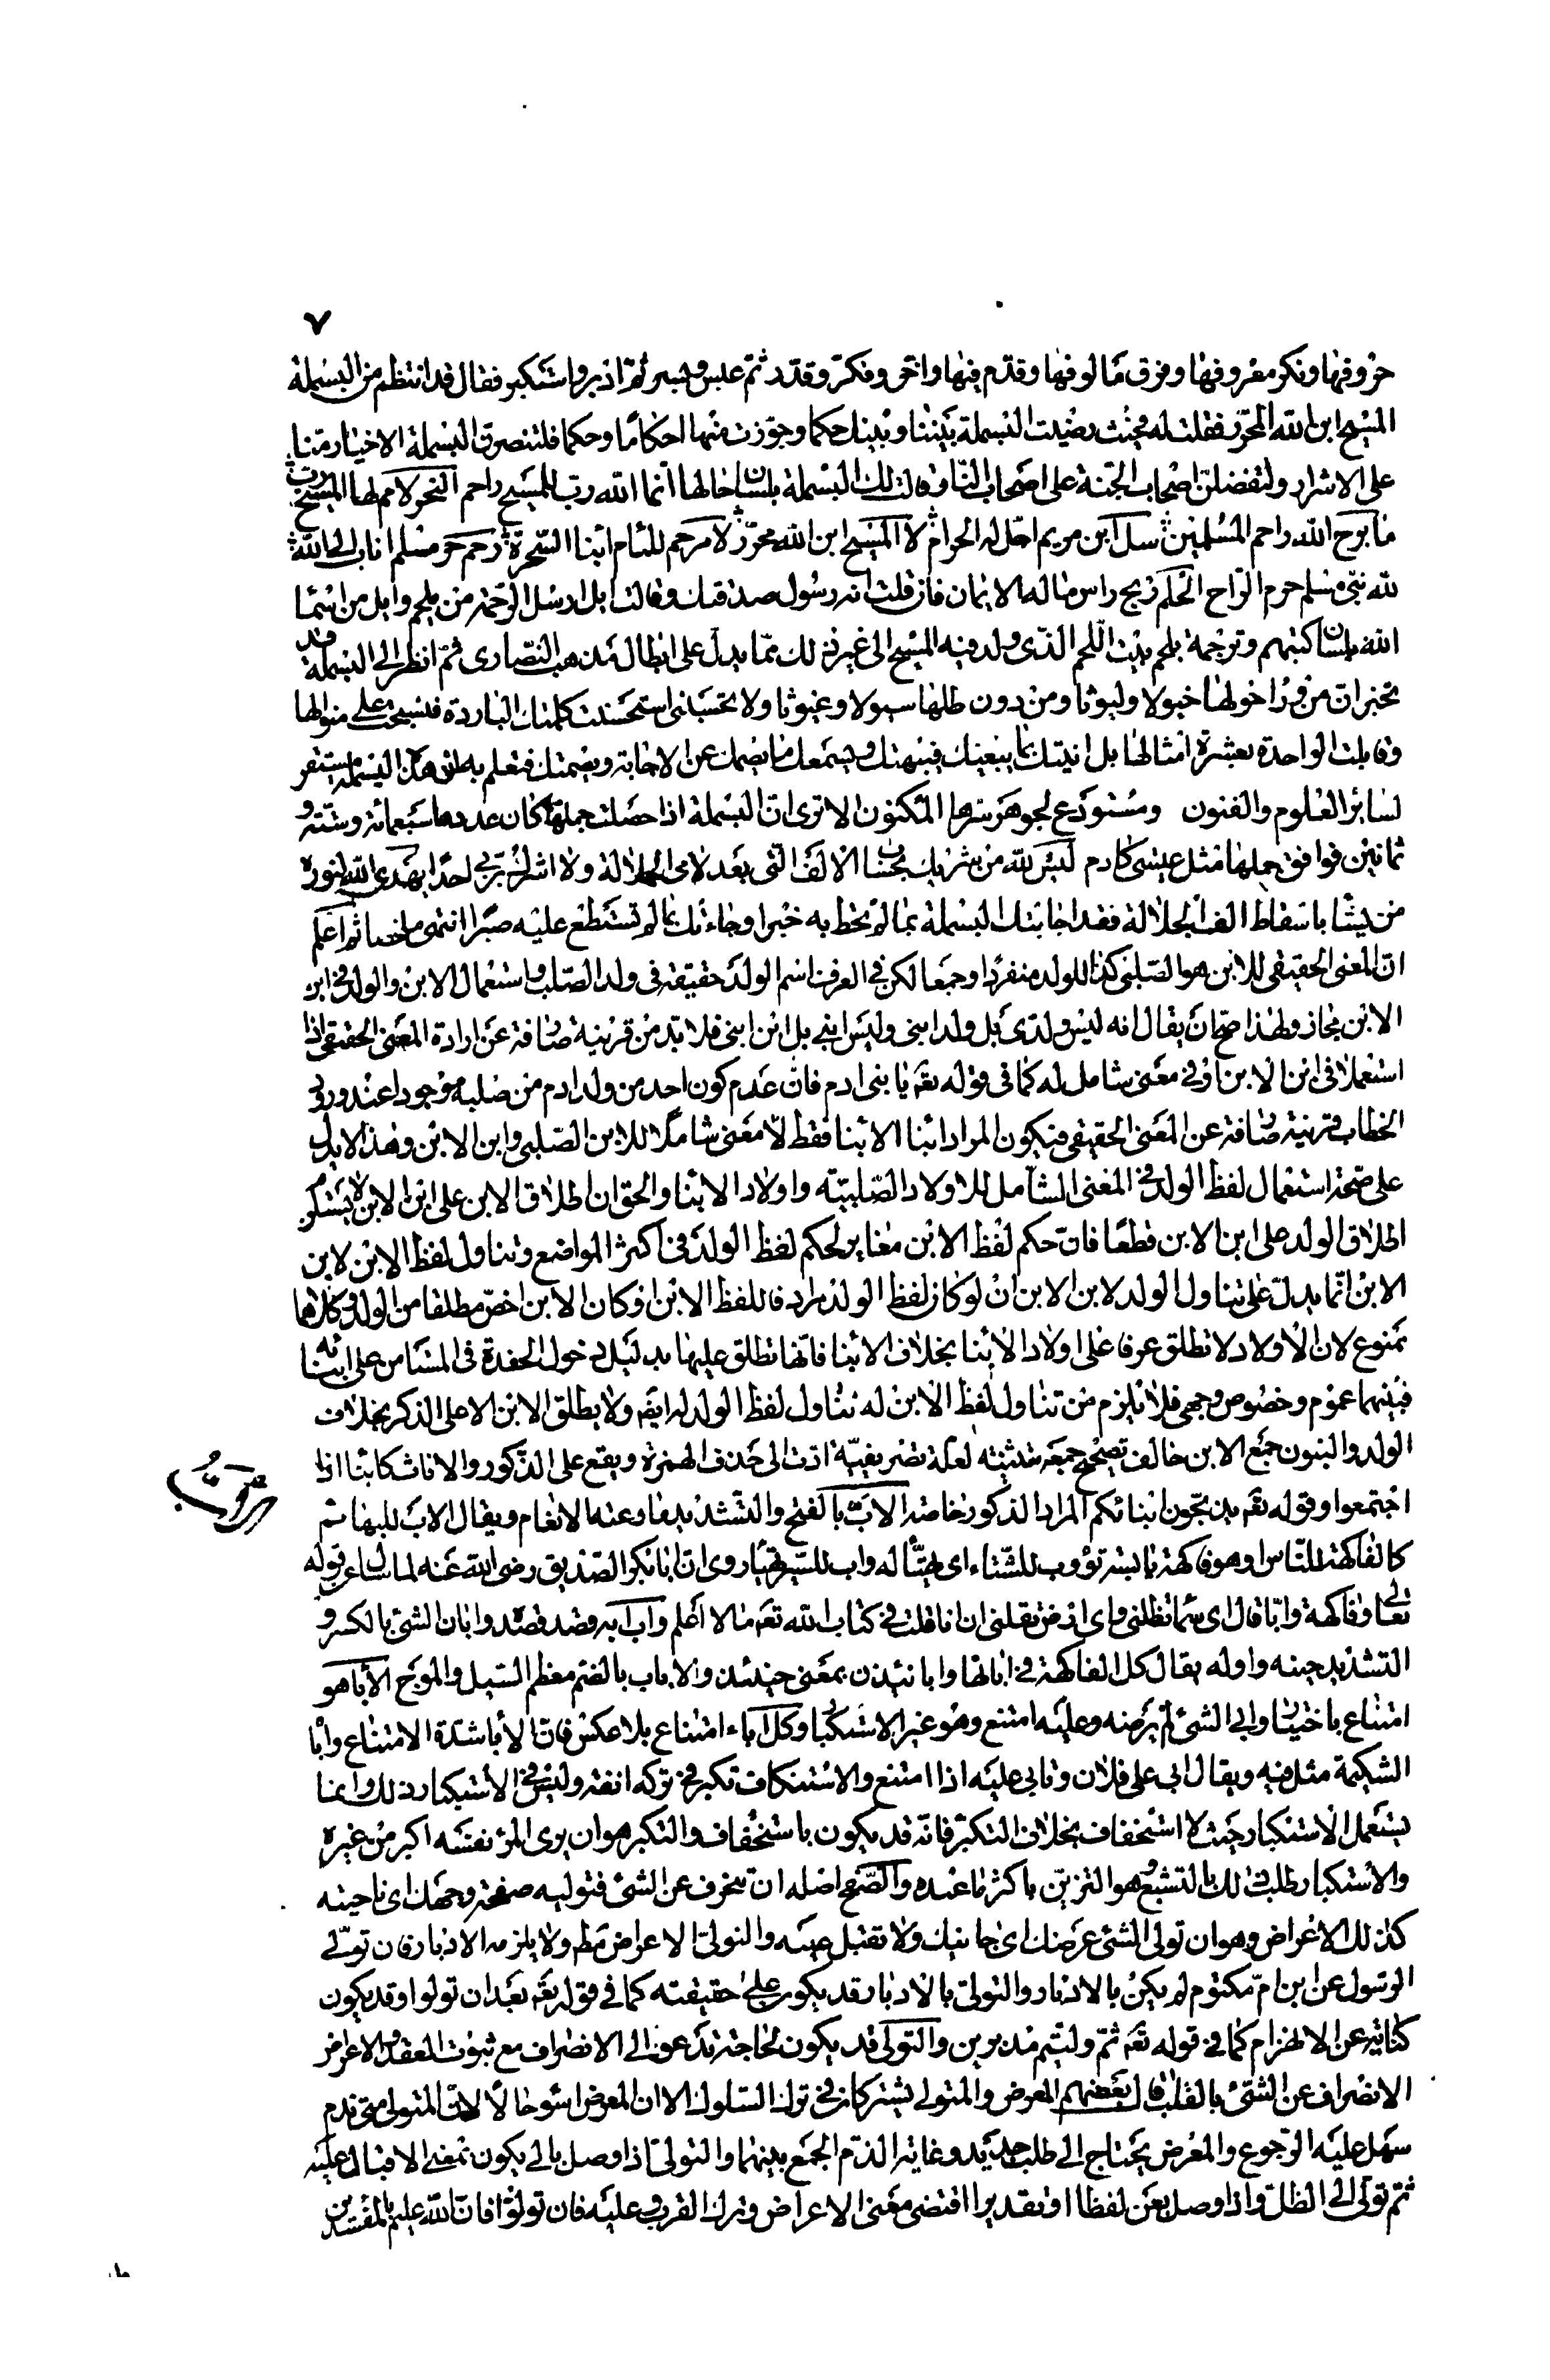 ٧
حروفها ونكر معروفها وفرق مالوفها وقدم فيها واخر وفكر وقدر ثم عبس وبسر ثم ادبر واستكبر فقال قد انتظم من البسملة
المسيح ابن الله المحرر فقلت له فحيث رضيت البسملة بيننا وبينك حكما وجوزت منها احكاما وحكما فلتنصرن البسملة الاخيار منا
على الاشرار ولتفضلن اصحاب الجنة على اصحاب النار قالت لك البسملة بلسان حالها انما الله رب للمسيح راحم النحر لامم لها المسيح رب
ما برح الله راحم المسلمين سل ابن مريم احل له الحرام لا المسيح ابن الله محرر لا مرحم للئام ابنا السحرة رحم حر مسلم اناب الى الله
لله نبي مسلم حرم الراح الحلم ربح راس ماله الايمان فان قلت انه رسول صدقتك وقالت ايل ارسل الرحمة من بلحم وايل من اسما
الله بلسان كتبهم وترجمة بلحم بيت اللحم الذي ولد فيه المسيح الى غير ذلك مما يدل على ابطال مذهب النصارى ثم انظر الى البسملة قد
تخبر ان من وراء حولها خيولا وليوثا ومن دون طلها سيولا وغيوثا ولا تحسبني استحسنت كلمتك الباردة فنسجت على منوالها
وقابلت الواحدة بعشرة امثالها بل اتيتك بما يبغيك فيبهتك ويسمعك ما يصمك عن الاجابة ويصمتك فتعلم به ان هذه البسملة مستقر
لسائر العلوم والفنون ومستودع لجوهر سرها المكنون الا ترى ان البسملة اذا حصلت جملتها كان عددها سبعمائة وستة و
ثمانين فوافق جملها مثل عيسى كادم ليس لله من شريك بحساب الالف التي بعد لامي الجلالة ولا اشرك بربي احدا يهدي الله لنوره
من يشا باسقاط الف الجلالة فقد اجابتك البسملة بما لم تحط به خبرا وجاءتك بما لم تستطع عليه صبرا انتهى ملخصا ثم اعلم
ان المعنى الحقيقي للابن هو الصلبي كذا للولد منفردا وجمعا لكن في العرف اسم الولد حقيقة في ولد الصلب واستعمال الابن والولد في ابن
الابن مجاز ولهذا صح ان يقال انه ليس ولدي بل ولد ابني وليس ابني بل ابن ابني فلا بد من قرينة صارفة عن ارادة المعنى الحقيقي اذا
استعملا في ابن الابن او في معنى شامل له كما في قوله تعه يا بني ادم فان عدم كون احد من ولد ادم من صلبه موجودا عند ورود
الخطاب قرينة صارفة عن المعنى الحقيقي فيكون المراد ابنا الابنا فقط لا معنى شاملا للابن الصلبي وابن الابن وهذا لا يدل
على صحة استعمال لفظ الولد في المعنى الشامل للاولاد الصلبية واولاد الابنا والحق ان اطلاق الابن على ابن الابن لا يستلزم
اطلاق الولد على ابن الابن قطعا فان حكم لفظ الابن مغاير لحكم لفظ الولد في اكثر المواضع وتناول لفظ الابن لابن
الابن انما يدل على تناول الولد لابن الابن ان لو كان لفظ الولد مرادفا للفظ الابن او كان الابن اخص مطلقا من الولد وكلاهما
ممنوع لان الاولاد لا تطلق عرفا على اولاد الابنا بخلاف الابنا فانها تطلق عليها بدليل دخول الحفدة في المستامن على ابنائه
فبينهما عموم وخصوص وجهي فلا يلزم من تناول لفظ الابن له تناول لفظ الولد له ايضه ولا يطلق الابن الا على الذكر بخلاف
الولد والبنون جمع الابن خالف تصحيح جمعه تثنيته لعلة تصريفية ادت الى حذف الهمزة ويقع على الذكور والاناث كابنا اذا
اجتمعوا وقوله تعه يذبحون ابنائكم المراد الذكور خاصة الاب بالفتح والتشديد ما رعته الانعام ويقال الاب للبهائم
كالفاكهة للناس او هو فاكهة يابسة تؤوب للشتاء اى تهيأ له واب للسير تهيأ روى ان ابا بكر الصديق رضى الله عنه لما سئل عن قوله
تعالى وفاكهة وابا قال اى سما تظلني واى ارض تقلني ان انا قلت في كتاب الله تعه ما لا اعلم واب ابه قصد قصده وابان الشئ بالكسر و
التشديد حينه واوله يقال كل الفاكهة في ابانها وابانئذن بمعنى حينئذن والاباب بالضم معظم السيل والموج الاباء هو
امتناع باختيار وابى الشئ لم يرضه وعليه امتنع وهو غير الاستكبار وكل اباء امتناع بلا عكس فان الابا شدة الامتناع وابا
الشكيمة مثل فيه ويقال ابى على فلان وتابى عليه اذا امتنع والاستنكاف تكبر في تركه انفة وليس في الاستكبار ذلك وانما
يستعمل الاستكبار حيث لا استخفاف بخلاف التكبر فانه قد يكون باستخفاف والتكبر هو ان يرى المرؤ نفسه اكبر من غيره
والاستكبار طلب ذلك بالتشبع وهو التزين باكثر ما عنده والصفح اصله ان تنحرف عن الشئ فتوليه صفحة وجهك اى ناحيته
كذلك الاعراض وهو ان تولى الشئ عرضك اى جانبك ولا تقبل عليه والتولى الاعراض مط ولا يلزمه الادبار فان تولى
الرسول عن ابن ام مكتوم لم يكن بالادبار والتولى بالادبار قد يكون على حقيقته كما في قوله تعه بعد ان تولوا وقد يكون
كناية عن الانهزام كما في قوله تعه ثم وليتم مدبرين والتولى قد يكون لحاجة تدعو الى الانصراف مع ثبوت العقد والاعراض
الانصراف عن الشئ بالقلب قال بعضهم المعرض والمتولى يشتركان في ترك السلوك الا ان المعرض اسوء حالا لان المتولى متى ندم
سهل عليه الرجوع والمعرض يحتاج الى طلب جديد وغاية الذم الجمع بينهما والتولى اذا وصل بالى يكون بمعنى الاقبال عليه
ثم تولى الى الظل واذا وصل بعن لفظا او تقديرا اقتضى معنى الاعراض وترك القرب وعليه فان تولوا فان الله عليم بالمفسدين